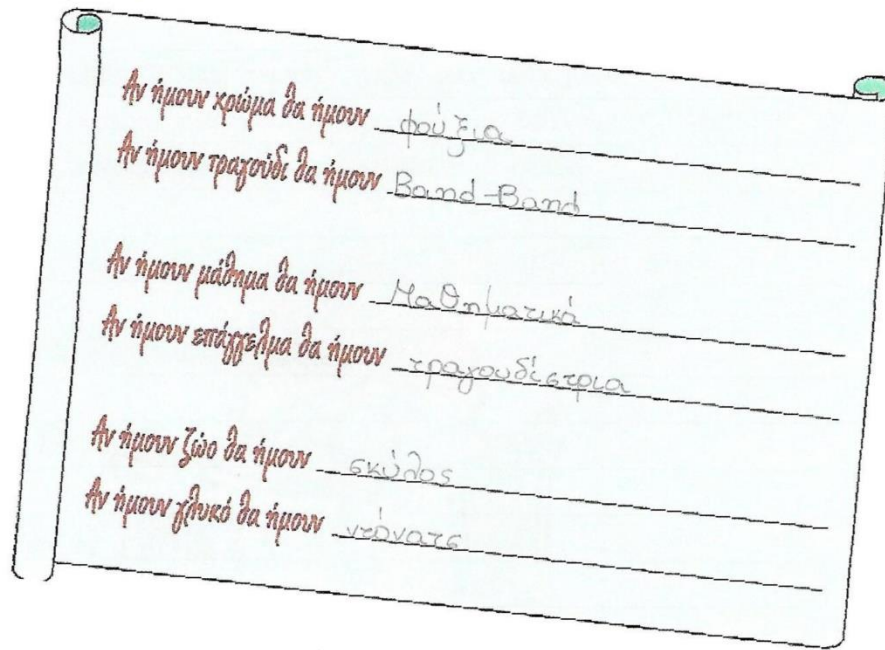 Αν ήμουν χρώμα θα ήμουν φούξια
Αν ήμουν τραγούδι θα ήμουν Band-Band
Αν ήμουν μάθημα θα ήμουν Μαθηματικά
Αν ήμουν επάγγελμα θα ήμουν τραγουδίστρια
Αν ήμουν ζώο θα ήμουν σκύλος
Αν ήμουν γλυκό θα ήμουν ντόνατς